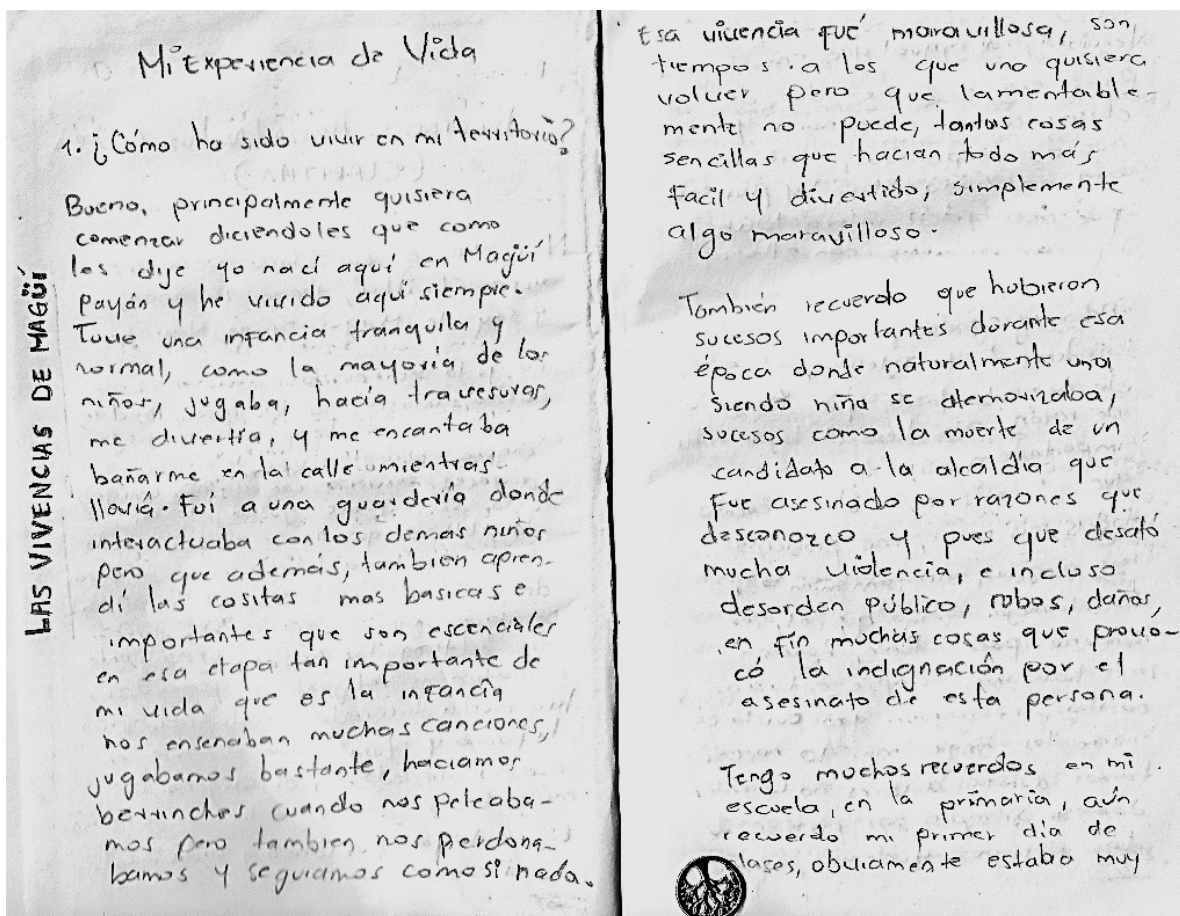 LAS VIVENCIAS DE MAGÜÍ
Mi Experiencia de Vida
1. ¿Cómo ha sido vivir en mi territorio?
Bueno, principalmente quisiera
comenzar diciendoles que como
les dije yo nací aquí en Magüí
Payán y he vivido aquí siempre.
Tuve una infancia tranquila y
normal, como la mayoría de los
niños, jugaba, hacía travesuras,
me divertía, y me encantaba
bañarme en la calle mientras
llovía. Fui a una guardería donde
interactuaba con los demas niños
pero que además, tambien apren-
dí las cositas mas basicas e
importantes que son escenciales
en esa etapa tan importante de
mi vida que es la infancia
nos enseñaban muchas canciones,
jugabamos bastante, haciamos
berrinches cuando nos peleaba-
mos pero tambien nos perdona-
bamos y seguiamos como si nada.
Esa vivencia fué maravillosa, son
tiempos a los que uno quisiera
volver pero que lamentable-
mente no puede, tantas cosas
sencillas que hacian todo más
facil y divertido, simplemente
algo maravilloso.
También recuerdo que hubieron
sucesos importantes durante esa
época donde naturalmente uno
siendo niña se atemorizaba,
sucesos como la muerte de un
candidato a la alcaldía que
fue asesinado por razones que
desconozco y pues que desató
mucha violencia, e incluso
desorden público, robos, daños,
en fín muchas cosas que provo-
có la indignación por el
asesinato de esta persona.
Tengo muchos recuerdos en mi
escuela, en la primaria, aún
recuerdo mi primer día de
lases, obviamente estaba muy